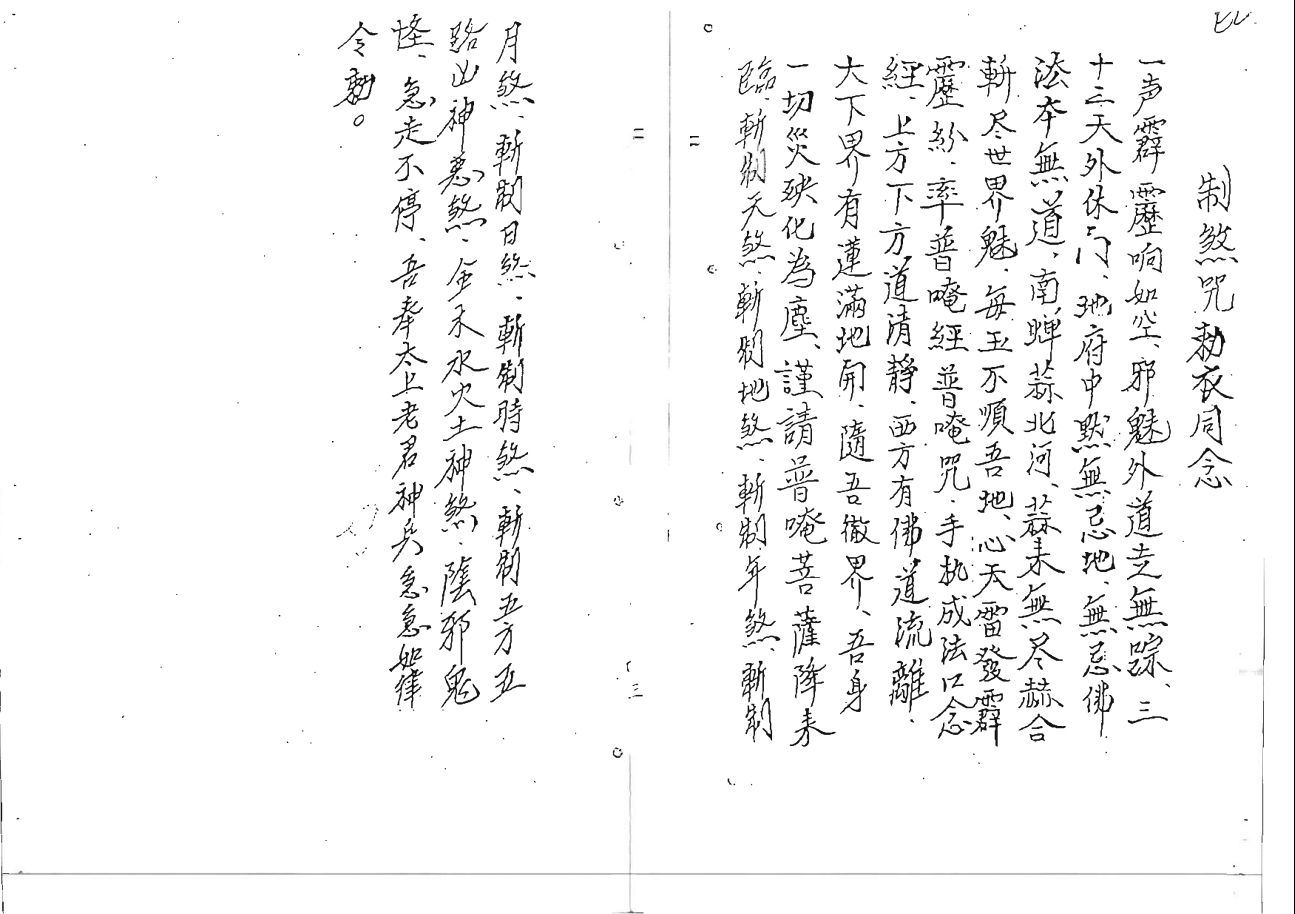 制煞咒勅衣同念
一声霹靂响如空、邪魅外道走無踪、三
十三天外休门、地府中默無忌地、無忌佛
法本無道、南蟬蒜北河、蒜来無尽赫合
斬尽世界魅、每玉不順吾地、心天雷發霹
靂紛、率普唵經普唵咒、手执成法口念
經、上方下方道清静、西方有佛道流離、
大下界有蓮滿地開、隨吾徹界、吾身
一切災殃化為塵、謹請普唵菩薩降来
臨、斬制天煞、斬制地煞、斬制年煞、斬制
月煞、斬制日煞、斬制時煞、斬制五方五
路山神惡煞、金木水火土神煞、陰邪鬼
怪、急走不停、吾奉太上老君神兵急急如律
令勅。
二
二
三